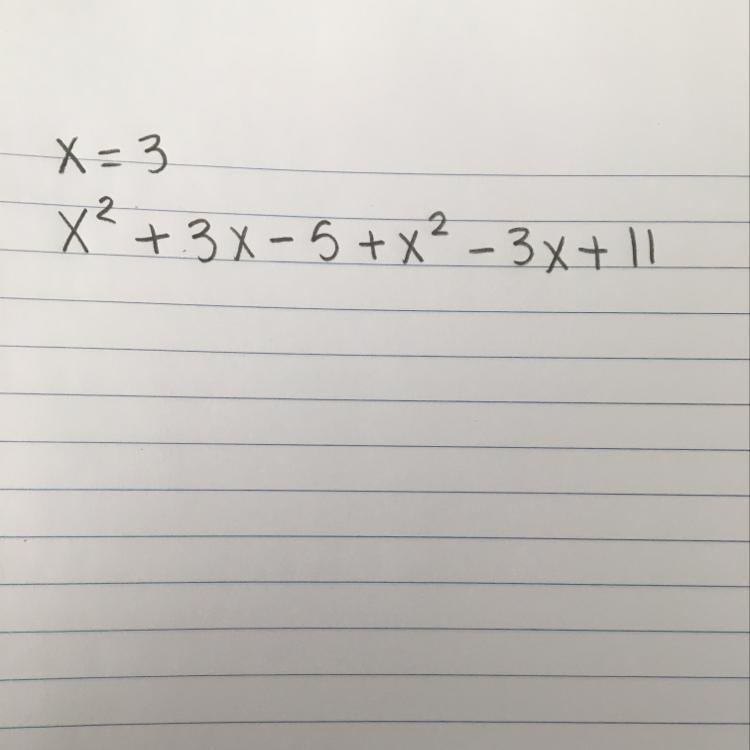 x = 3
x² + 3x - 5 + x² - 3x + 11